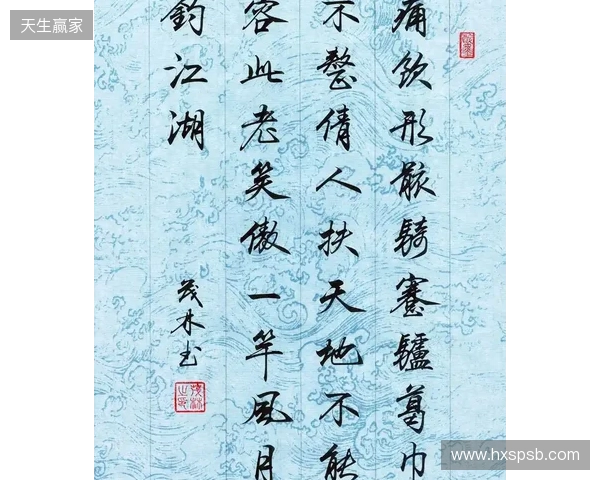 天生赢家
痛飲形骸騎蹇驢葛巾
不整倩人扶天地不能
容此老笑傲一竿風月
釣江湖
茂林书
www.hxspsb.com